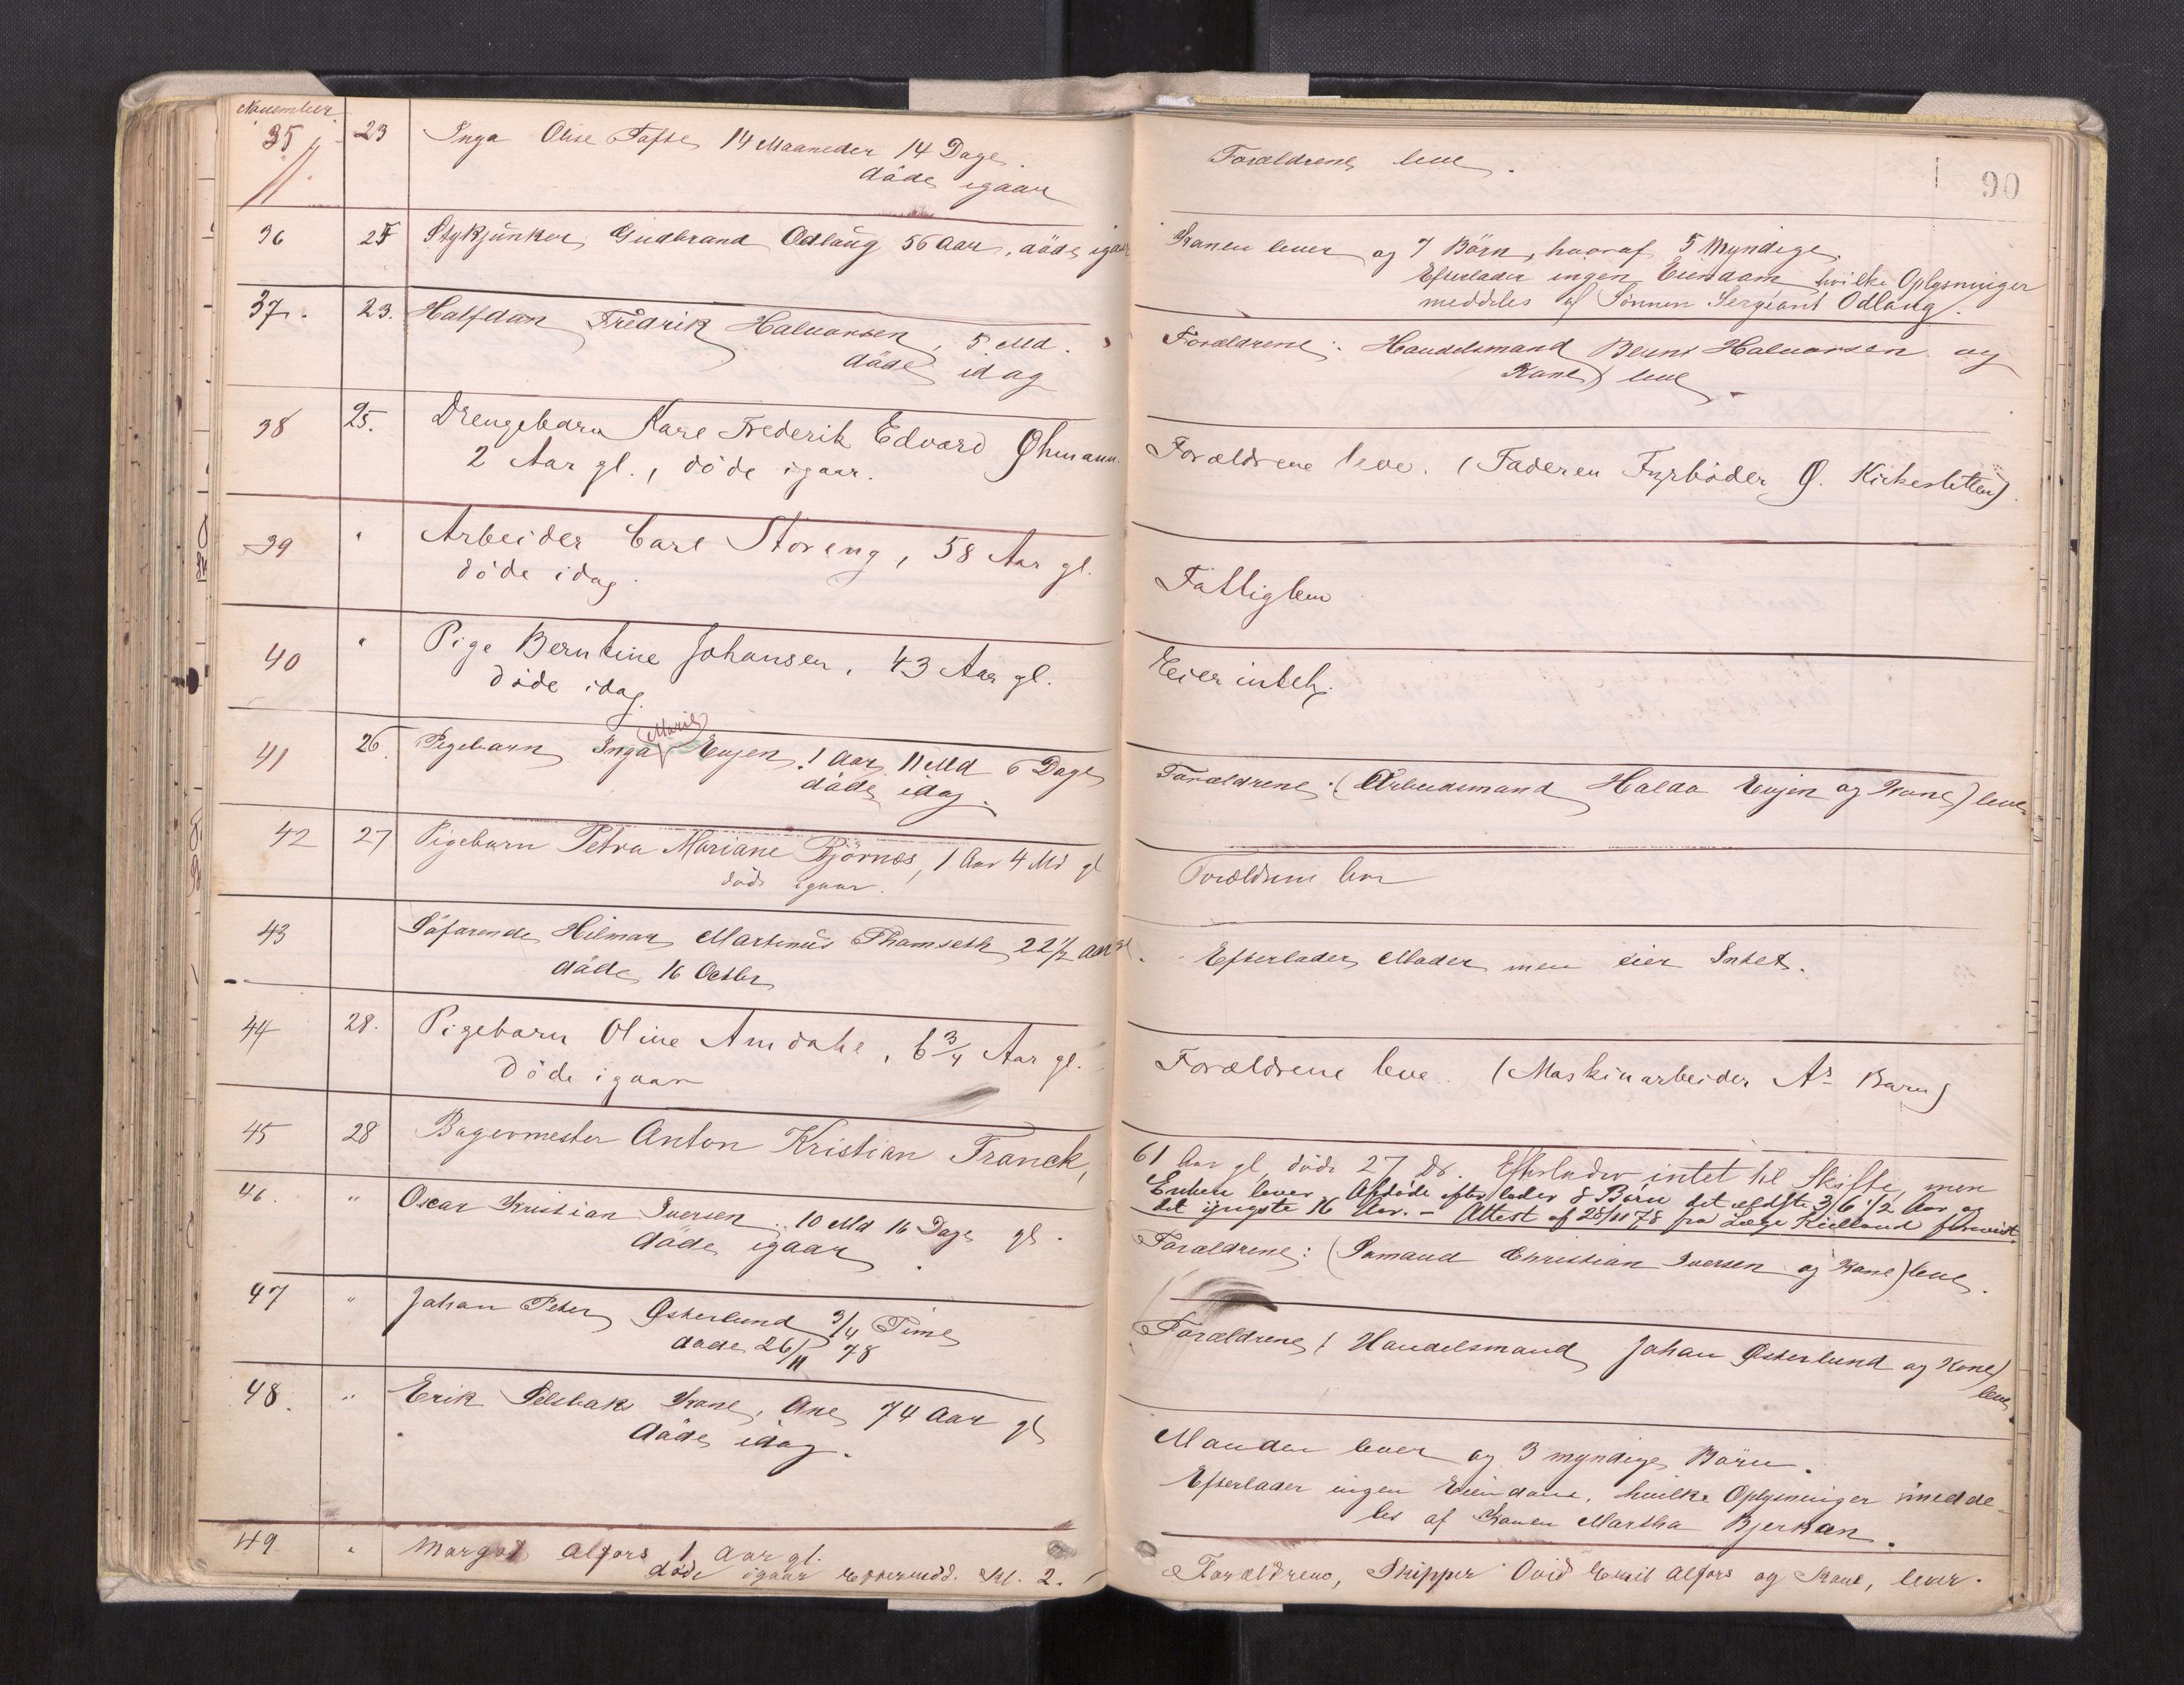 November
90
35 23 Inga Olise Tafse, 14 Maaneder 14 Dage.
döde igaar
Forældrene leve.
36 25 Stykjunker Gudbrand Odlaug 56 Aar, döde igaar
Konen lever og 7 Börn, hvoraf 5 Myndige,
Efterlader ingen Eiendom hvilke Oplysninger
meddeles af Sönnen Sergeant Odlaug.
37. 23. Halfdan Fredrik Halvorsen, 5 Md.
döde idag
Forældrene: Handelsmand Bernt Halvorsen og
Kone) leve.
38 25. Drengebarn Kare Frederik Edvard Øhmann.
2 Aar gl., döde igaar.
Forældrene leve. (Faderen Fyrböder Ø. Kirkesletten).
39 " Arbeider Carl Storeng, 58 Aar gl.
döde idag.
Fattiglem
40 " Pige Berntine Johansen, 43 Aar gl.
döde idag.
Eier intet.
Marie
41 26. Pigebarn Inga Eujen, 1 Aar 11 Md 6 Dage
döde idag.
Forældrene: (Arbeidsmand Haldo Eujen og Kone) leve
42 27 Pigebarn Petra Mariane Björnos, 1 Aar 4 Md gl
död igaar.
Forældrene lever
43 Söfarende Hilmar Martinus Thamseth 22 1/2 Aar gl.
döde 16 Octbr
Efterlader Moder men eier Intet.
44 28. Pigebarn Oline Amdahl, 6 3/4 Aar gl.
döde igaar
Forældrene leve. (Maskinarbeider As Barn)
45 28 Bagermester Anton Kristian Franck,
61 Aar gl, döde 27 ds. Efterlader intet til Skifte, men
Enken lever. Afdöde efterlader 8 Börn det ældste 36 1/2 Aar og
det yngste 16 Aar. – Attest af 28/11 78 fra Læge Kielland forevist.
46. " Oscar Kristian Iversen. 10 Md 16 Dage gl.
döde igaar.
Forældrene: (Sömand Christian Iversen og Kone) leve.
47 " Johan Peter Østerlund 3/4 Time
döde 26/11 78
Forældrene, (Handelsmand Johan Østerlund og Kone)
leve
48. " Erik Selsbaks Kone, Ane 74 Aar gl
döde idag.
Manden lever og 3 myndige Börn.
Efterlader ingen Eiendom, hvilke Oplysninger medde-
les af Konen Martha Bjerkan.
49 " Margot Alfors 1 Aar gl.
döde igaar Eftermidd. Kl. 2.
Forældrene, Skipper Ovid Emil Alfors og Kone, lever.